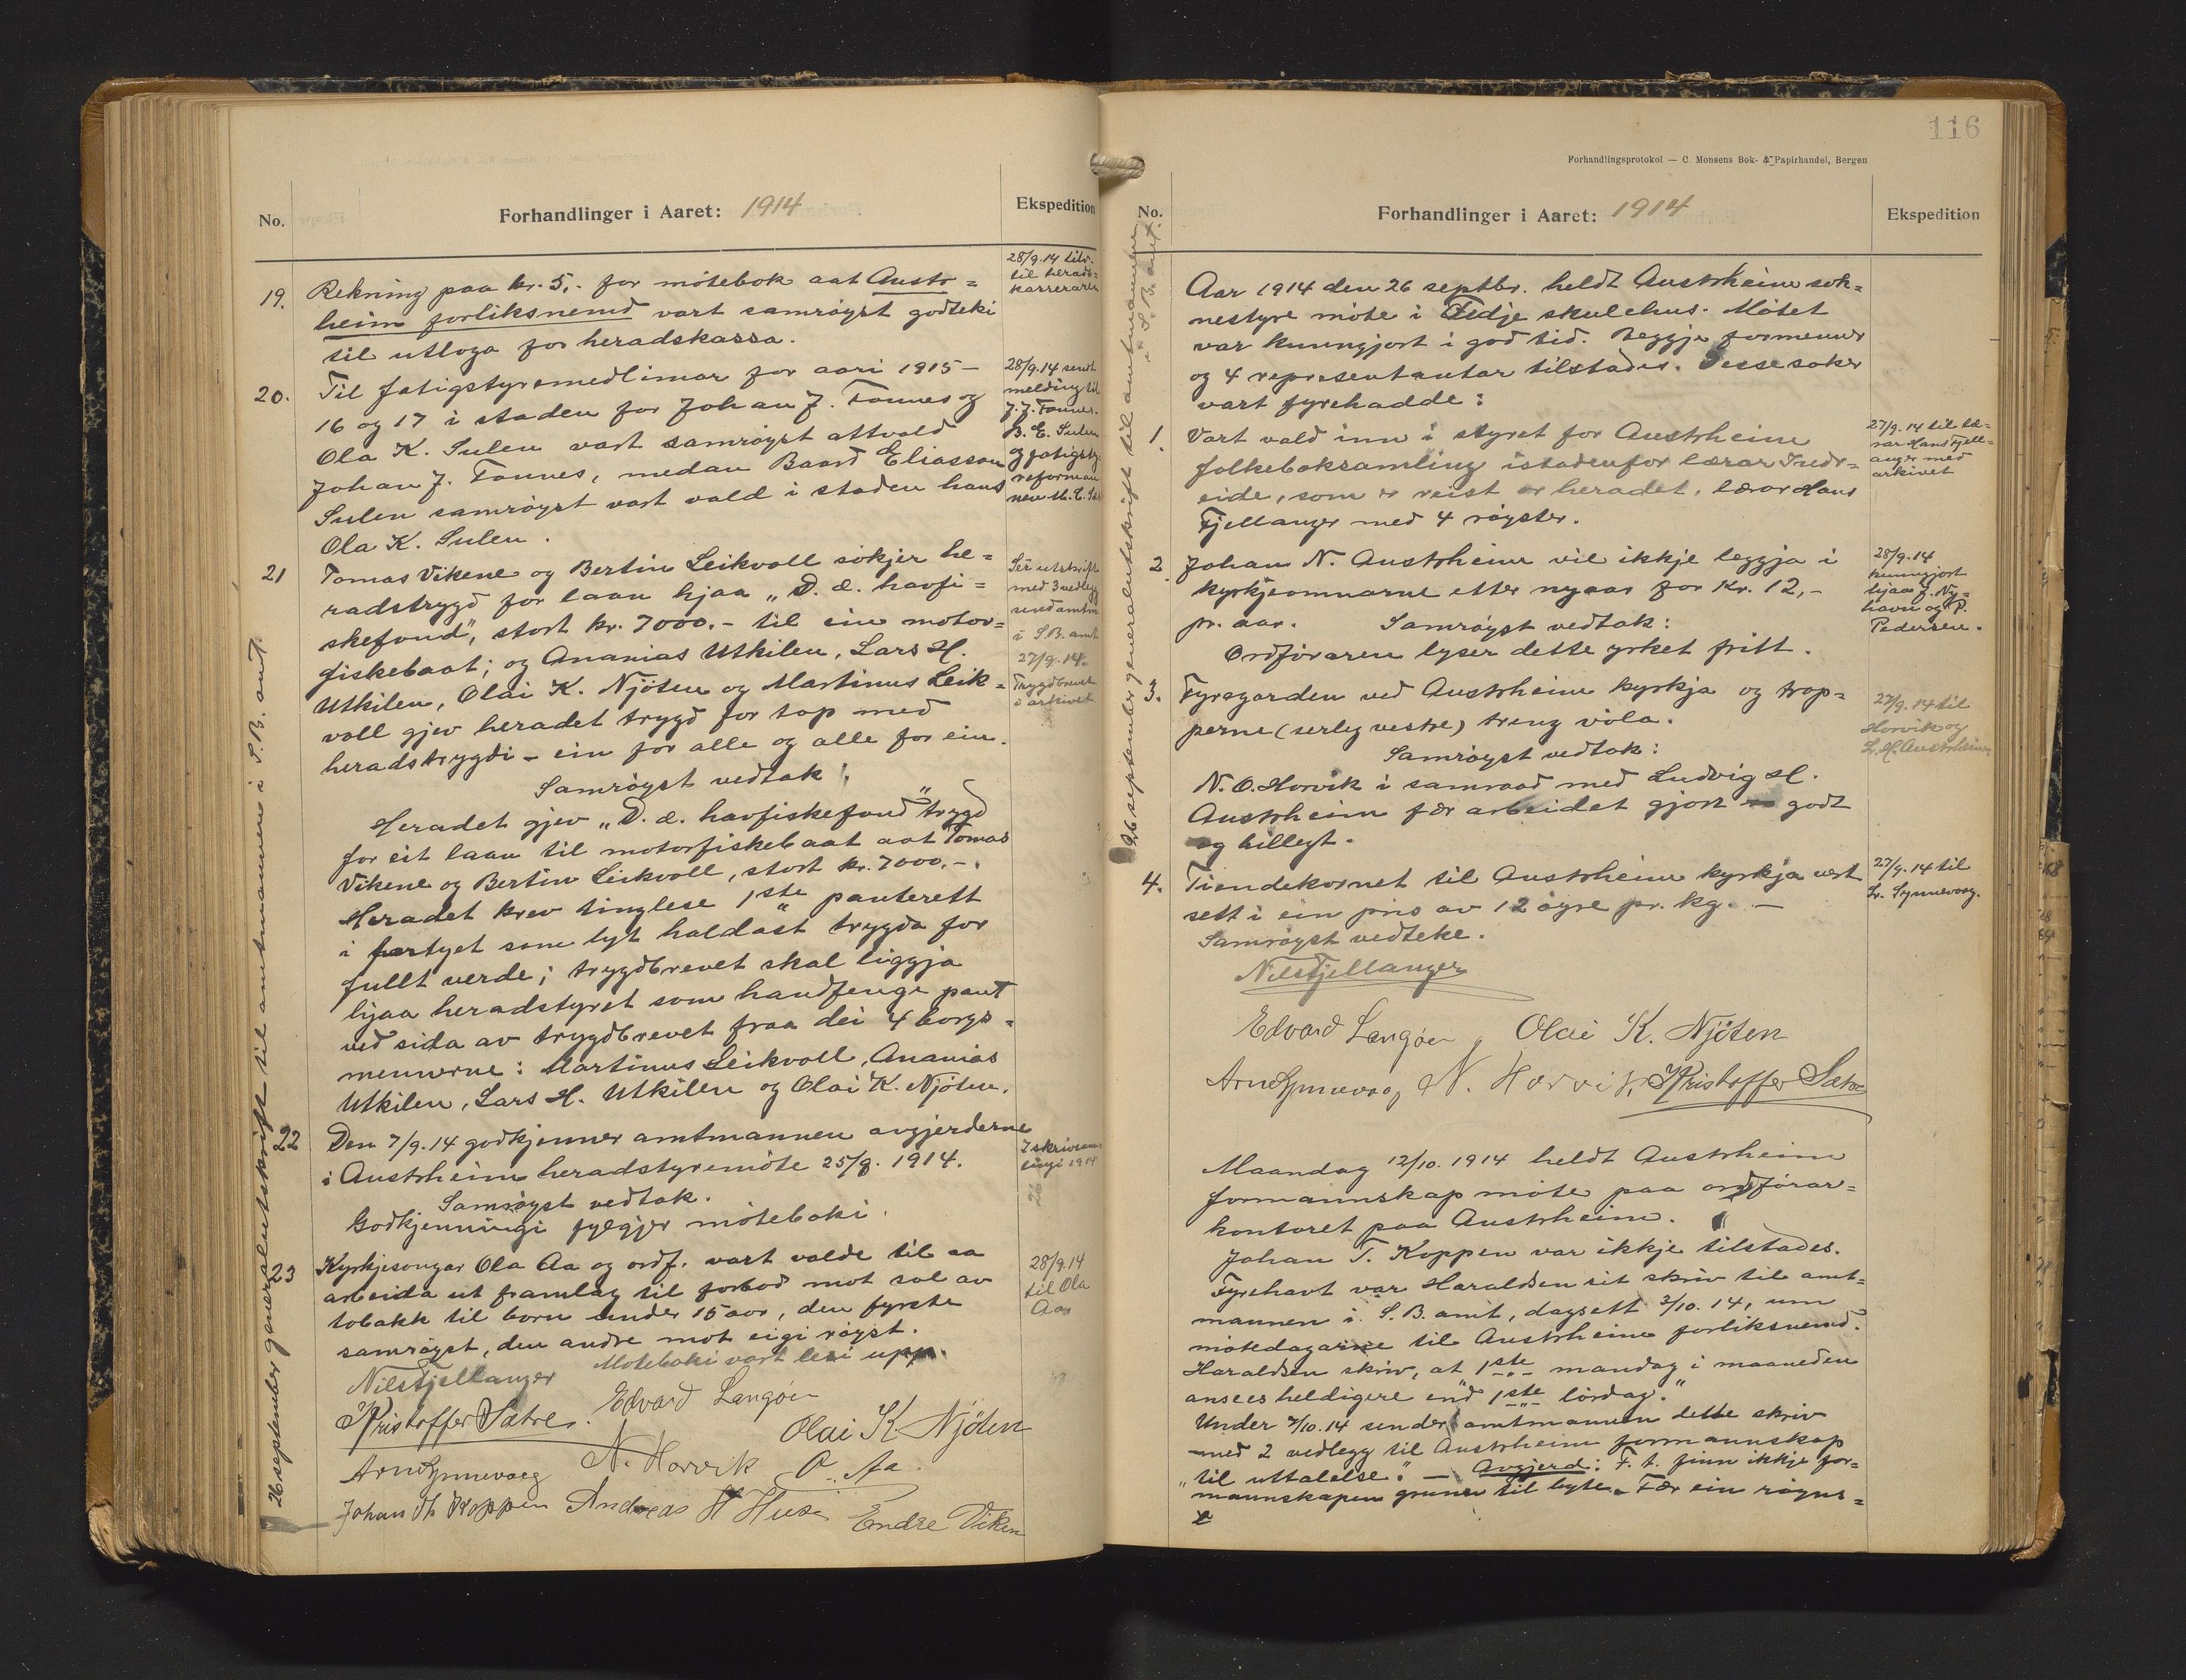 No.
Forhandlinger i Aaret: 1914
Ekspedition
19.
Rekning paa kr. 5,- for mötebok aat Austr=
heim forliksnemd vart samröyst godteki
til utloga for heradskassa.
28/9.14 tilv.
til herads=
kasseraren
20.
Til fatigstyremedlimar for aari 1915 –
16 og 17 i staden for Johan J. Fonnes og
Ola K. Sulen vart samröyst attvald
Johan J. Fonnes, medan Baard Eliasson
Sulen samröyst vart vald i staden hans
Ola K. Sulen.
28/9.14 sendt
melding til
J. J. Fonnes.
B. E. Sulen
og fatigsty
reforman
nen
21
Tomas Vikene og Bertin Leikvoll sökjer he=
radstrygd for laan hjaa „D. d. havfi=
skefond", stort kr. 7000.- til ein motor=
fiskebaat; og Ananias Utkilen, Lars H.
Utkilen, Olai K. Njöten og Martinus Leik=
voll gjev heradet trygd for tap med
heradstrygdi – ein for alle og alle for ein.
Samröyst vedtak:
Heradet gjev „D. d. havfiskefond" trygd
for eit laan til motorfiskebaat aat Tomas
Vikene og Bertin Leikvoll, stort kr. 7000.-.
Heradet krev tinglese 1ste panterett
i fartyet som lyt haldast trygda for
fullt verde; trygdbrevet skal liggja
hjaa heradstyret som handfenge pant
ved sida av trygdbrevet fraa dei 4 borgs=
mennerne: Martinus Leikvoll, Ananias
Utkilen, Lars H. Utkilen og Olai K. Njöten.
Ser utskrift
med 3 vedlegg
send amtm
i S. B. amt
27/9.14.
Trygdbrevet
i arkivet
22
Den 7/9.14 godkjenner amtmannen avgjerderne
i Austrheim heradstyremöte 25/8. 1914.
Samröyst vedtak.
Godkjenningi fylgjer möteboki.
I skrivsam
lingi 1914
23
Kyrkjesongar Ola Aa og ordf. vart valde til aa
arbeida ut framlag til forbod mot sal av
tobakk til born under 15 aar, den fyrste
samröyst, den andre mot eigi röyst.
Möteboki vart lesi upp.
28/9.14
til Ola
Aa
Nils Fjellanger
Edvard Langöen
Kristoffer Sætre.
Olai K. Njöten
Arne Synnevaag
N. Horvik
O. Aa.
Johan Th Koppen
Andreas H Husa
Endre Viken
26 september generalutskrift til amtmannen i S. B. amt.
116
Forhandlingsprotokol — C. Monsens Bok- & Papirhandel, Bergen
No.
Forhandlinger i Aaret: 1914
Ekspedition
26 september generalutskrift til amtmannen
i S. B. amt.
Aar 1914 den 26 septbr. heldt Austrheim sok=
nestyre möte i Fedje skulehus. Mötet
var kunngjort i god tid. Beggje formenner
og 4 representantar tilstades. Desse saker
vart fyrehadde:
1.
Vart vald inn i styret for Austrheim
folkeboksamling istadenfor lærar Indr=
eide, som er reist or heradet, lærar Hans
Fjellanger med 4 röyster.
27/9.14 til læ=
rar Hans Fjell=
anger med
arkivet
2.
Johan N. Austrheim vil ikkje leggja i
kyrkjeomnarne etter nyaar for Kr. 12,-
pr. aar. Samröyst vedtak:
Ordföraren lyser dette yrket fritt.
28/9.14
kunngjort
hjaa J. Ny=
havn og P.
Pedersen.
3.
Fyregarden ved Austrheim kyrkja og trap=
perne (serleg vestre) treng völa.
Samröyst vedtak:
N. O. Horvik i samraad med Ludvig H.
Austrheim fær arbeidet gjort godt
og billegt.
27/9.14 til
Horvik og
L. H. Austrheim.
4.
Tiendekornet til Austrheim kyrkja vert
sett i ein pris av 12 öyre pr. kg. –
Samröyst vedteke.
27/9.14 til
Lr. Synnevaag.
Nils Fjellanger
Edvard Langöen Olai K. Njöten
Arne Synnevaag N. Horvik, Kristoffer Sætre
Maandag 12/10. 1914 heldt Austrheim
formannskap möte paa ordförar=
kontoret paa Austrheim.
Johan T. Koppen var ikkje tilstades.
Fyrehavt var Haraldsen sit skriv til amt=
mannen i S. B. amt, dagsett 3/10. 14, um
mötedagarne til Austrheim forliksnemd.
Haraldsen skriv, at 1ste mandag i maaneden
ansees heldigere end 1ste lördag."
Under 7/10.14 sender amtmannen dette skriv
med 2 vedlegg til Austrheim formannskap
"til uttalelse". – Avgjerd: F. t. finn ikkje for=
mannskapen grunn til byte. Fær ein röyns=